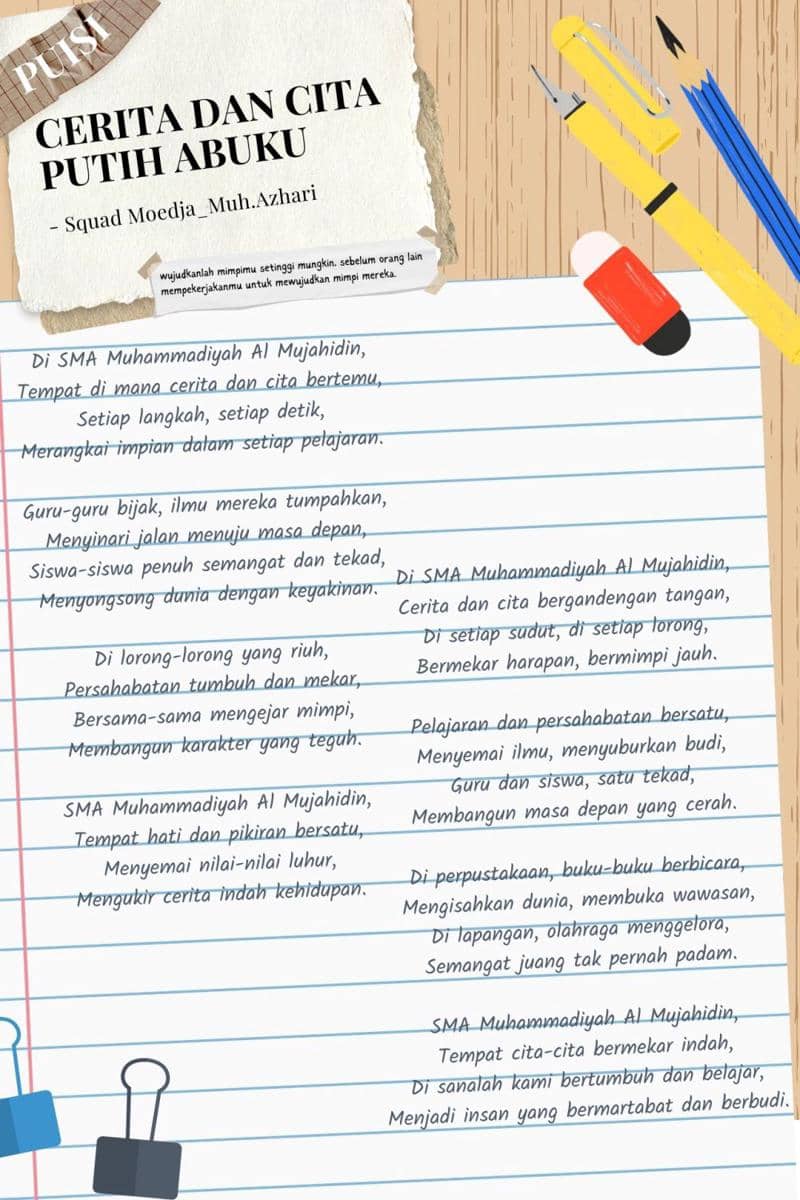 PUISI
CERITA DAN CITA
PUTIH ABUKU
- Squad Moedja_Muh.Azhari
wujudkanlah mimpimu setinggi mungkin. sebelum orang lain
mempekerjakanmu untuk mewujudkan mimpi mereka.
Di SMA Muhammadiyah Al Mujahidin,
Tempat di mana cerita dan cita bertemu,
Setiap langkah, setiap detik,
Merangkai impian dalam setiap pelajaran.
Guru-guru bijak, ilmu mereka tumpahkan,
Menyinari jalan menuju masa depan,
Siswa-siswa penuh semangat dan tekad,
Menyongsong dunia dengan keyakinan.
Di lorong-lorong yang riuh,
Persahabatan tumbuh dan mekar,
Bersama-sama mengejar mimpi,
Membangun karakter yang teguh.
SMA Muhammadiyah Al Mujahidin,
Tempat hati dan pikiran bersatu,
Menyemai nilai-nilai luhur,
Mengukir cerita indah kehidupan.
Di SMA Muhammadiyah Al Mujahidin,
Cerita dan cita bergandengan tangan,
Di setiap sudut, di setiap lorong,
Bermekar harapan, bermimpi jauh.
Pelajaran dan persahabatan bersatu,
Menyemai ilmu, menyuburkan budi,
Guru dan siswa, satu tekad,
Membangun masa depan yang cerah.
Di perpustakaan, buku-buku berbicara,
Mengisahkan dunia, membuka wawasan,
Di lapangan, olahraga menggelora,
Semangat juang tak pernah padam.
SMA Muhammadiyah Al Mujahidin,
Tempat cita-cita bermekar indah,
Di sanalah kami bertumbuh dan belajar,
Menjadi insan yang bermartabat dan berbudi.